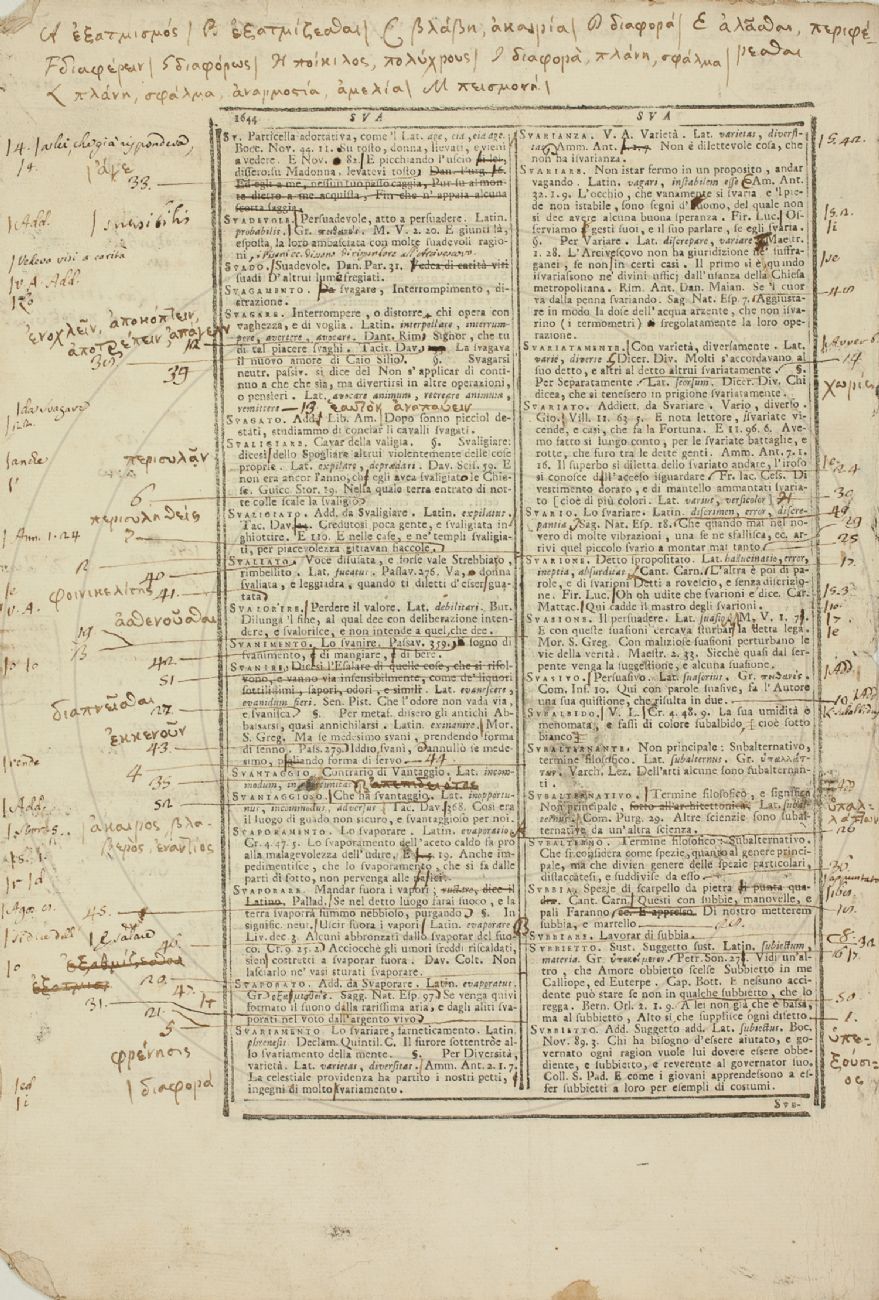 A ἐξατμισμός / B ἐξατμίζεσθαι / C βλάβη, ἀκαιρία / D διαφορά / E ἀλᾶσθαι, περιφέ-
F διαφέρειν / G διαφόρως / H ποίκιλος, πολύχρους / I διαφορὰ, πλάνη, σφάλμα / ρεσθαι
L πλάνη, σφάλμα, ἀναρμοστία, ἀμελία / M πεισμονή /
1644 SVA
SV. Particella adortativa, come 'l Lat. age, eia, eia age.
Bocc. Nov. 44. 11. Su tosto, donna, lievati, e vieni
a vedere. E Nov. 82. E picchiando l'uscio si lei,
dissero: su Madonna, levatevi tosto. Dan. Purg. 16.
Ed egli a me, nessun tuo passo caggia, Pur su al mon-
te dietro a me acquista, Fin che n' appaia alcuna
scorta saggia.
SVADEVOLE. Persuadevole, atto a persuadere. Latin.
probabilis. Gr. M. V. 2. 20. E giunti là,
esposta, la loro ambasciata con molte suadevoli ragio-
ni,
SVADO. Suadevole. Dan. Par. 31. Vedea di carità visi
suadi D'altrui lume fregiati.
SVAGAMENTO. Da svagare, Interrompimento, di-
strazione.
SVAGARE. Interrompere, o distorre chi opera con
vaghezza, e di voglia. Latin. interpellare, interrum-
pere, avertere, avocare. Dant. Rim. Signor, che tu
di tal piacere svaghi. Tacit. Dav. La svagava
il nuovo amore di Caio Silio. §. Svagarsi
neutr. passiv. si dice del Non s' applicar di conti-
nuo a che che sia, ma divertirsi in altre operazioni,
o pensieri. Lat. avocare animum, recreare animum,
remittere 13 ἑαυτὸν ἀναπαύειν
SVAGATO. Add. Lib. Am. Dopo sonno picciol de-
stati, studiammo di conciar li cavalli svagati.
SVALIGIARE. Cavar della valigia. §. Svaligiare:
dicesi dello Spogliare altrui violentemente delle cose
proprie. Lat. expilare, depredari. Dav. Scis. 59. E
non era ancor l'anno, ch' egli avea svaligiato le Chie-
se. Guicc. Stor. 19. Nella quale terra entrato di not-
te colle scale la svaligiò.
SVALIGIATO. Add. da Svaligiare. Latin. expilatus.
Tac. Dav. Credutosi poca gente, e svaligiata in-
ghiottire. E 110. E nelle case, e ne' templi svaligia-
ti, per piacevolezza gittavan fiaccole.
SVALIATO. Voce disusata, e forse vale Strebbiato,
rimbellito. Lat. fucatus. Passav. 276. Va, o donna
svaliata, e leggiadra, quando ti diletti d'esser gua-
tata.
SVALORIRE. Perdere il valore. Lat. debilitari. But.
Dilunga 'l fine, al qual dee con deliberazione inten-
dere, e svalorisce, e non intende a quel, che dee.
SVANIMENTO. Lo svanire. Passav. 359. sogno di
svanimento, di mangiare, di bere.
SVANIRE. Dicesi l'Esalare di quelle cose, che si risol-
vono, e vanno via insensibilmente, come de' liquori
sottilissimi, sapori, odori, e simili. Lat. evanescere,
evanidum fieri. Sen. Pist. Che l'odore non vada via,
e svanisca. §. Per metaf. dissero gli antichi Ab-
bassarsi, quasi annichilarsi. Latin. exinanire. Mor.
S. Greg. Ma se medesimo svanì, prendendo forma
di senno. Pass. 279. Iddio svanì, o annullò se mede-
simo, pigliando forma di servo. 44
SVANTAGGIO. Contrario di Vantaggio. Lat. incom-
modum,
SVANTAGGIOSO. Che ha svantaggio. Lat. inopportu-
nus, incommodus, adversus. Tac. Dav. 368. Così era
il luogo di guado non sicuro, e svantaggioso per noi.
SVAPORAMENTO. Lo svaporare. Latin. evaporatio.
Cr. 4. 47. 5. Lo svaporamento dell'aceto caldo fa pro
alla malagevolezza dell'udire. E 19. Anche im-
pedimentisce, che lo svaporamento, che si fa dalle
parti di sotto, non pervenga alle radici.
SVAPORARE. Mandar fuora i vapori; dice il
Latino. Pallad. Se nel detto luogo farai fuoco, e la
terra svaporrà fummo nebbioso, purgando. §. In
signific. neut. Uscir fuora i vapori. Latin. evaporare.
Liv. dec. 3. Alcuni abbronzati dallo svaporar del fuo-
co. Cr. 9. 25. 2. Acciocchè gli umori freddi riscaldati,
sien costretti a svaporar fuora. Dav. Colt. Non
lasciarlo ne' vasi sturati svaporare.
SVAPORATO. Add. da Svaporare. Latin. evaporatus.
Gr. Sagg. Nat. Esp. 97. Se venga quivi
formato il suono dalla rarissima aria, e dagli aliti sva-
porati nel voto dall'argento vivo.
SVARIAMENTO. Lo svariare, farneticamento. Latin.
phrenesis. Declam. Quintil. C. Il furore sottentrò al-
lo svariamento della mente. §. Per Diversità,
varietà. Lat. varietas, diversitas. Amm. Ant. 2. 1. 7.
La celestiale providenza ha partito i nostri petti,
ingegni di molto svariamento.
SVA
SVARIANZA. V. A. Varietà. Lat. varietas, diversi-
tas. Amm. Ant. Non è dilettevole cosa, che
non ha isvarianza.
SVARIARE. Non istar fermo in un proposito, andar
vagando. Latin. vagari, instabilem esse. Amm. Ant.
32. 1. 9. L'occhio, che vanamente si svaria, e 'l pie-
de non istabile, sono segni d'uomo, del quale non
si dee avere alcuna buona speranza. Fir. Luc. Of-
serviamo i gesti suoi, e il suo parlare, se egli svaria.
§. Per Variare. Lat. discrepare, variare. Maestr.
1. 28. L'Arcivescovo non ha giuridizione ne' suffra-
ganei, se non in certi casi. Il primo si è quando
isvariassono ne' divini ufici dall'usanza della Chiesa
metropolitana. Rim. Ant. Dan. Maian. Se 'l cuor
va dalla penna svariando. Sag. Nat. Esp. 7. Aggiusta-
re in modo la dose dell'acqua arzente, che non isva-
rino (i termometri) sregolatamente la loro ope-
razione.
SVARIATAMENTE. Con varietà, diversamente. Lat.
varie, diverse. Dicer. Div. Molti s'accordavano al
suo detto, e altri al detto altrui svariatamente. §.
Per Separatamente. Lat. seorsum. Dicer. Div. Chi
dicea, che si tenessero in prigione svariatamente.
SVARIATO. Addiett. da Svariare. Vario, diverso.
Gio. Vill. 11. 63. 5. E nota lettore, svariate vi-
cende, e casi, che fa la Fortuna. E 11. 96. 6. Ave-
mo fatto sì lungo conto, per le svariate battaglie, e
rotte, che furo tra le dette genti. Amm. Ant. 7. 1.
16. Il superbo si diletta dello svariato andare, l'iroso
si conosce dall'acceso isguardare. Fr. Iac. Cess. Di
vestimento dorato, e di mantello ammantati svaria-
to [cioè di più colori. Lat. varius, versicolor. H
SVARIO. Lo svariare. Latin. discrimen, error, discre-
pantia. Sag. Nat. Esp. 18. Che quando mai nel no-
vero di molte vibrazioni, una se ne fallisca, ec. ar-
rivi quel piccolo svario a montar mai tanto.
SVARIONE. Detto spropositato. Lat. hallucinatio, error,
ineptia, absurditas. Cant. Carn. L'altra è poi di pa-
role, e di svarioni Detti a rovescio, e senza discrizio-
ne. Fir. Luc. Oh oh udite che svarioni e' dice. Car.
Mattac. Qui cadde il mastro degli svarioni.
SVASIONE. Il persuadere. Lat. suasio. M. V. 1. 7.
E con queste suasioni cercava sturbar la detta lega.
Mor. S. Greg. Con maliziose suasioni perturbano le
vie della verità. Maestr. 2. 33. Sicchè quasi dal ser-
pente venga la suggestione, e alcuna suasione.
SVASIVO. Persuasivo. Lat. suasorius. Gr.
Com. Inf. 10. Qui con parole suasive, fa l'Autore
una sua quistione, che risulta in due.
SVBALBIDO. V. L. Cr. 4. 48. 9. La sua umidità è
menomata, e fassi di colore subalbido [cioè sotto
bianco]
SVBALTERNANTE. Non principale: Subalternativo,
termine filosofico. Lat. subalternus. Gr. ὑπαλλάτ-
των. Varch. Lez. Dell'arti alcune sono subalternan-
ti.
SVBALTERNATIVO. Termine filosofico, e significa
Non principale, sotto all'architettonica. Lat. subal-
ternus. Com. Purg. 29. Altre scienzie sono subal-
ternative da un'altra scienza.
SVBALTERNO. Termine filosofico: Subalternativo.
Che si considera come spezie, quanto al genere princi-
pale, ma che divien genere delle spezie particolari,
distaccatesi, e suddivise da esso.
SVBBIA. Spezie di scarpello da pietra di punta qua-
dra. Cant. Carn. Questi con subbie, manovelle, e
pali Faranno ec. E appresso. Di nostro metterem
subbia, e martello.
SVBBIARE. Lavorar di subbia.
SVBBIETTO. Sust. Suggetto sust. Latin. subiectum,
materia. Gr. ὑποκείμενον. Petr. Son. 27. Vidi un'al-
tro, che Amore obbietto scelse Subbietto in me
Calliope, ed Euterpe. Cap. Bott. E nessuno acci-
dente può stare se non in qualche subbietto, che lo
regga. Bern. Orl. 2. 1. 9. A lei non già che è bassa,
ma al subbietto, Alto sì che supplisce ogni difetto.
SVBBIETTO. Add. Suggetto add. Lat. subiectus. Boc.
Nov. 89. 3. Chi ha bisogno d'essere aiutato, e go-
vernato ogni ragion vuole lui dovere essere obbe-
diente, e subbietto, e reverente al governator suo.
Coll. S. Pad. E come i giovani apprendessono a es-
ser subbietti a loro per esempli di costumi.
SVB-
33.
Add.
insensibili
ἐνοχλεῖν, ἀποκόπτειν,
ἀποτρέπειν ἀπάγειν
39
περισυλᾶν
6
περισυληθείς
7
40
φοινικελίκτης
41.
ἀσθενοῦσθαι
42
51
διαπνεῖσθαι
27.
ἐκκενοῦν
43.
4
35
52
ἄκαιρος βλα-
βερός, ἐναντίος
45.
46.
20.
47.
31.
21.
5
φρένησις
διαφορά
14
χωρίς
24
30
49
29
25
10
ὑπαλ-
λάττων
26
50
ὑπε-
ξούσι-
ος